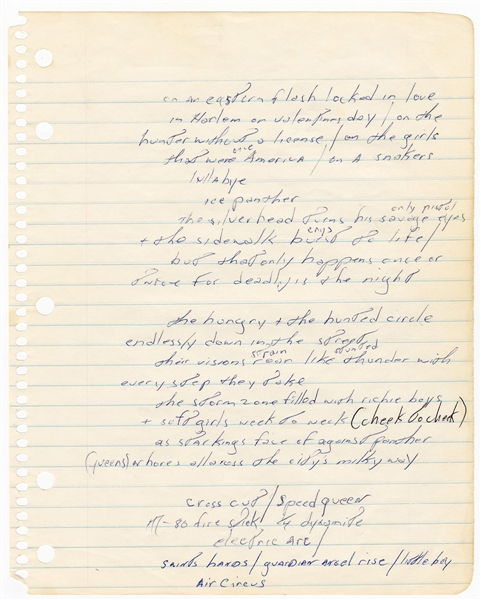 on an eastern flash locked in love
in Harlem on valentines day / on the
hunter without a license / on the girls
once
that were America / on A smokers
lullabye
ice panther
only pistol
the silverhead turns his savage eyes
crys
+ the sidewalk burst to life /
but that only happens once or
twice for deadly is the night
the hungry + the hunted circle
endlessly down in the street
strain hunted
their visions roan like thunder with
every step they take
the storm zone filled with richie boys
+ soft girls week to week (cheek to cheek)
as starkings face of against panther
(queens) whores all across the city's milky way
cross cut / speed queen
M-80 fire stick / 1/4 dynamite
electric Arc /
saints hands / guardian angel rise / little boy
Air Circus